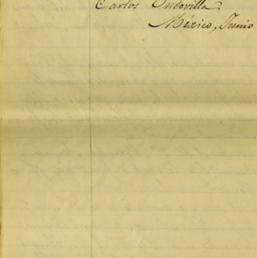 Carlos Undovilla.
México, Junio